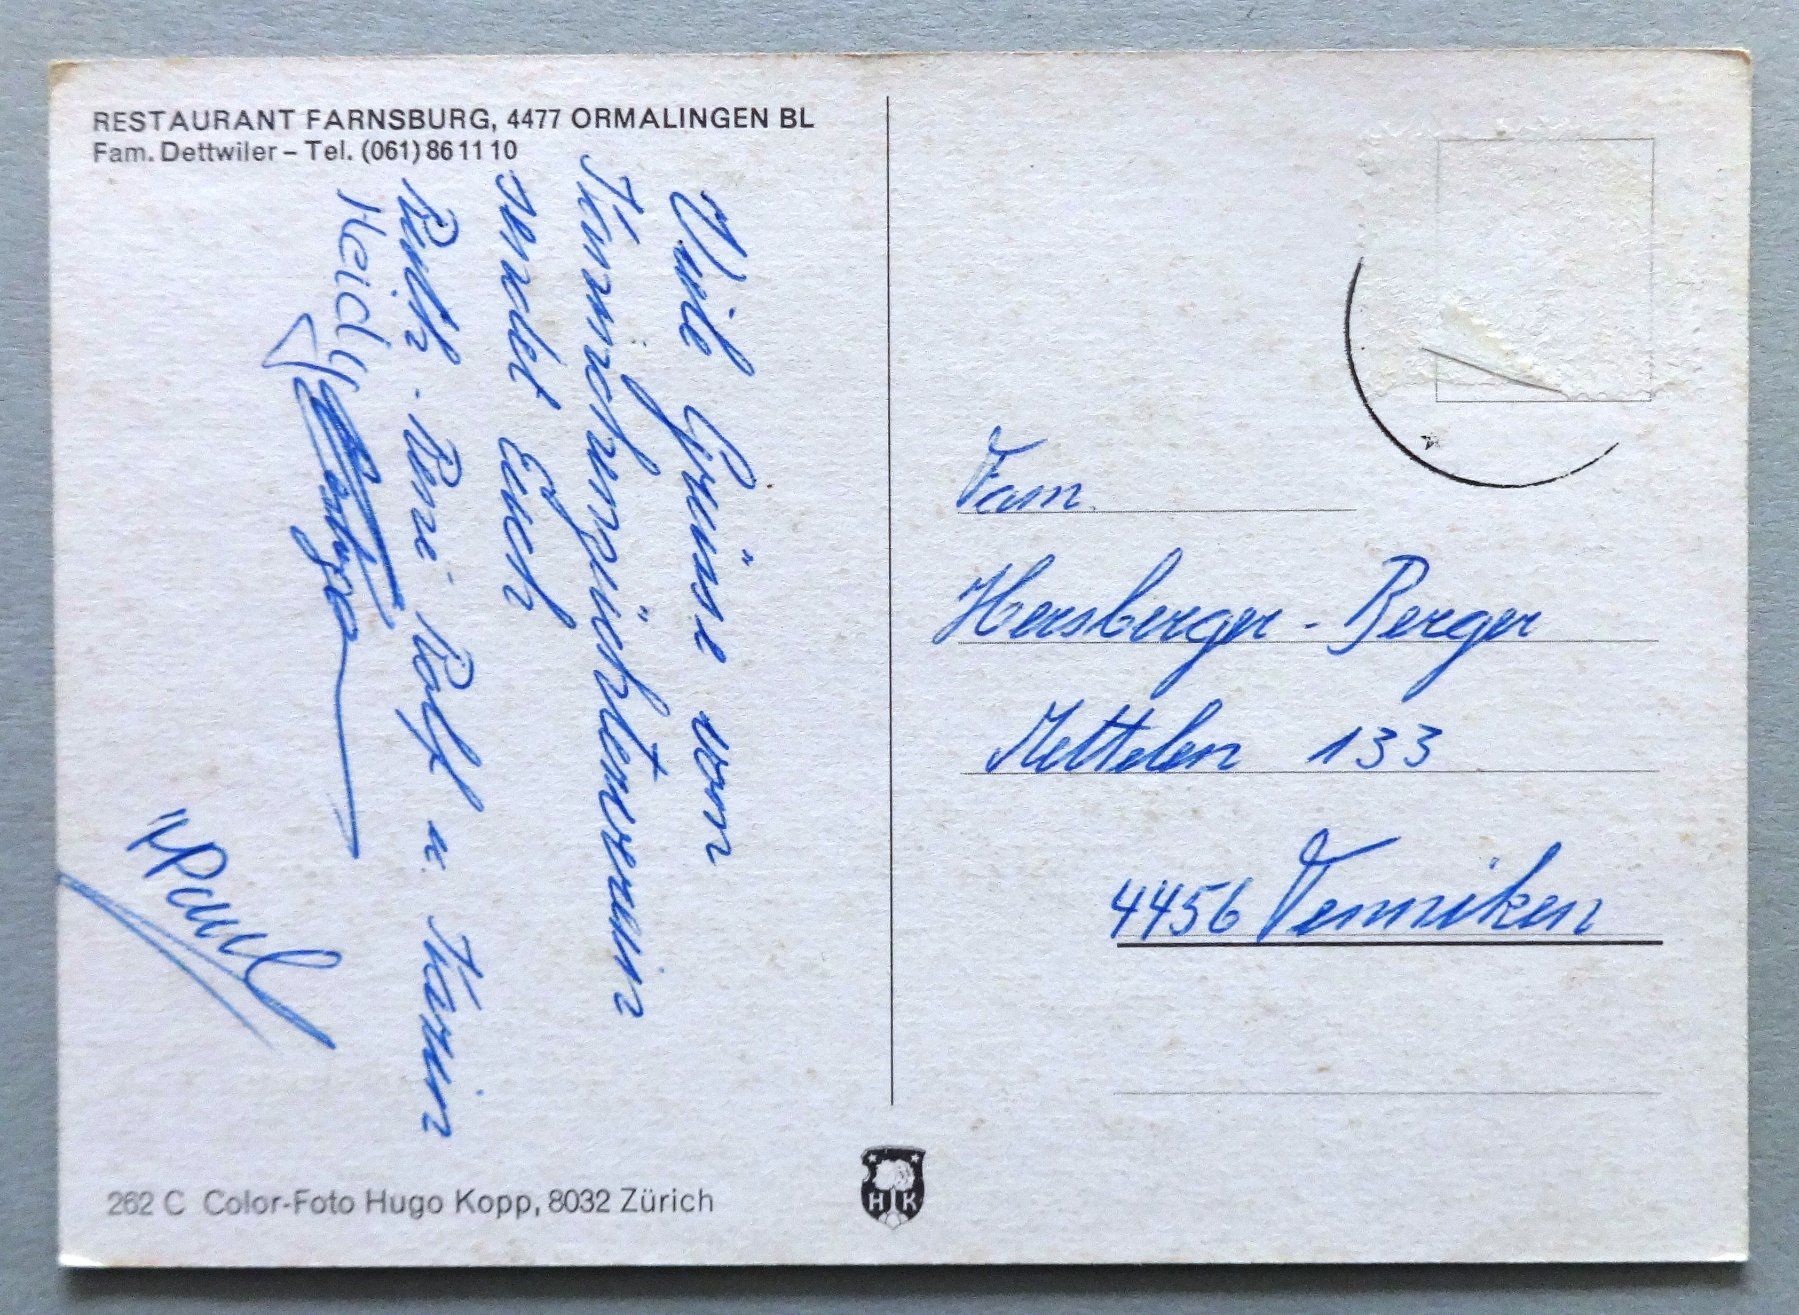 RESTAURANT FARNSBURG, 4477 ORMALINGEN BL
Fam. Dettwiler – Tel. (061) 86 11 10
Viele Grüsse von
sendet Euch
Ruth - René - Rolf u. Karin
Heidy
Paul
Fam.
Hersberger - Berger
Mettelen 133
4456 Tenniken
262 C Color-Foto Hugo Kopp, 8032 Zürich
H K